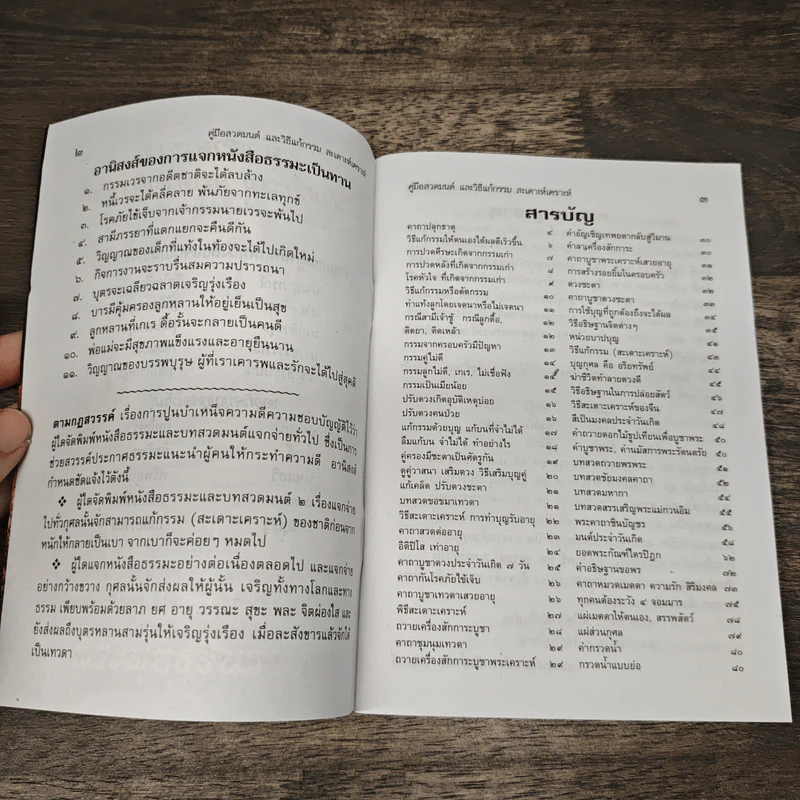 ๒
คู่มือสวดมนต์ และวิธีแก้กรรม สะเดาะห์เคราะห์
อานิสงส์ของการแจกหนังสือธรรมะเป็นทาน
๑. กรรมเวรจากอดีตชาติจะได้ลบล้าง
๒. หนี้เวรจะได้คลี่คลาย พ้นภัยจากทะเลทุกข์
๓. โรคภัยไข้เจ็บจากเจ้ากรรมนายเวรจะพ้นไป
๔. สามีภรรยาที่แตกแยกจะคืนดีกัน
๕. วิญญาณของเด็กที่แท้งในท้องจะได้ไปเกิดใหม่
๖. กิจการงานจะราบรื่นสมความปรารถนา
๗. บุตรจะเฉลียวฉลาดเจริญรุ่งเรือง
๘. บารมีคุ้มครองลูกหลานให้อยู่เย็นเป็นสุข
๙. ลูกหลานที่เกเร ดื้อรั้นจะกลายเป็นคนดี
๑๐. พ่อแม่จะมีสุขภาพแข็งแรงและอายุยืนนาน
๑๑. วิญญาณของบรรพบุรุษ ผู้ที่เราเคารพและรักจะได้ไปสู่สุคติ
ตามกฎสวรรค์ เรื่องการปูนบำเหน็จความดีความชอบบัญญัติไว้ว่า
ผู้ใดจัดพิมพ์หนังสือธรรมะและบทสวดมนต์แจกจ่ายทั่วไป ซึ่งเป็นการ
ช่วยสวรรค์ประกาศธรรมแนะนำผู้คนให้กระทำความดี อานิสงส์
กำหนดชัดแจ้งไว้ดังนี้
❖ ผู้ใดจัดพิมพ์หนังสือธรรมะและบทสวดมนต์ ๒ เรื่องแจกจ่าย
ไปทั่วกุศลนั้นจักสามารถแก้กรรม (สะเดาะห์เคราะห์) ของชาติก่อนจาก
หนักให้กลายเป็นเบา จากเบาก็จะค่อยๆ หมดไป
❖ ผู้ใดแจกหนังสือธรรมะอย่างต่อเนื่องตลอดไป และแจกจ่าย
อย่างกว้างขวาง กุศลนั้นจักส่งผลให้ผู้นั้น เจริญทั้งทางโลกและทาง
ธรรม เพียบพร้อมด้วยลาภ ยศ อายุ วรรณะ สุขะ พละ จิตผ่องใส และ
ยังส่งผลถึงบุตรหลานสามรุ่นให้เจริญรุ่งเรือง เมื่อละสังขารแล้วจักได้
เป็นเทวดา
คู่มือสวดมนต์ และวิธีแก้กรรม สะเดาะห์เคราะห์
๓
สารบัญ
คาถาปลุกธาตุ ๔
วิธีแก้กรรมให้ตนเองได้ผลดีเร็วขึ้น ๖
การปวดศีรษะเกิดจากกรรมเก่า ๗
การปวดหลังที่เกิดจากกรรมเก่า ๘
โรคหัวใจ ที่เกิดจากกรรมเก่า ๙
วิธีแก้กรรมหรือตัดกรรม ๑๐
ทำแท้งลูกโดยเจตนาหรือไม่เจตนา ๑๑
กรณีสามีเจ้าชู้ กรณีลูกดื้อ,
ติดยา, ติดเหล้า ๑๒
กรรมจากครอบครัวมีปัญหา ๑๓
กรรมคู่ไม่ดี
กรรมลูกไม่ดี, เกเร, ไม่เชื่อฟัง ๑๔
กรรมเป็นเมียน้อย ๑๕
ปรับดวงเกิดอุบัติเหตุบ่อย ๑๖
ปรับดวงคนป่วย ๑๖
แก้กรรมด้วยบุญ แก้บนที่จำไม่ได้
ลืมแก้บน จำไม่ได้ ทำอย่างไร ๑๗
คู่ครองมีชะตาเป็นศัตรูกัน ๑๘
ดูคู่วาสนา เสริมดวง วิธีเสริมบุญคู่ ๑๙
แก้เคล็ด ปรับดวงชะตา ๒๐
บทสวดขอขมาเทวดา ๒๑
วิธีสะเดาะเคราะห์ การทำบุญรับอายุ ๒๒
คาถาสวดต่ออายุ ๒๓
อิติปิโส เท่าอายุ ๒๔
คาถาบูชาดวงประจำวันเกิด ๗ วัน ๒๕
คาถากันโรคภัยไข้เจ็บ ๒๖
คาถาบูชาเทวดาเสวยอายุ ๒๖
พิธีสะเดาะเคราะห์ ๒๗
ถวายเครื่องสักการะบูชา ๒๘
คาถาชุมนุมเทวดา ๒๙
ถวายเครื่องสักการะบูชาพระเคราะห์ ๒๙
คำอัญเชิญเทพยดากลับสู่วิมาน ๓๐
คำลาเครื่องสักการะ ๓๐
คาถาบูชาพระเคราะห์เสวยอายุ ๓๑
การสร้างรอยยิ้มในครอบครัว ๓๒
ดวงชะตา ๓๒
คาถาบูชาดวงชะตา ๓๓
การใช้บุญที่ถูกต้องถึงจะได้ผล ๓๔
วิธีอธิษฐานจิตต่างๆ ๓๕
หน่วยบาปบุญ ๔๑
วิธีแก้กรรม (สะเดาะเคราะห์) ๔๓
บุญกุศล คือ อริยทรัพย์ ๔๔
ฆ่าชีวิตทำลายดวงดี ๔๕
วิธีอธิษฐานในการปล่อยสัตว์
วิธีสะเดาะเคราะห์ของจีน ๔๗
สีเป็นมงคลประจำวันเกิด ๔๘
คำถวายดอกไม้ธูปเทียนเพื่อบูชาพระ ๕๐
คำบูชาพระ, คำนมัสการพระรัตนตรัย ๕๐
บทสวดถวายพรพระ ๕๑
บทสวดชัยมงคลคาถา ๕๒
บทสวดมหากา ๕๔
บทสวดสรรเสริญพระแม่กวนอิม ๕๕
พระคาถาชินบัญชร ๕๖
มนต์ประจำวันเกิด ๕๘
ยอดพระกัณฑ์ไตรปิฎก ๖๒
คำอธิษฐานขอพร ๗๒
คาถาหมวดเมตตา ความรัก สิริมงคล ๗๓
ทุกคนต้องระวัง ๔ จอมมาร ๗๕
แผ่เมตตาให้ตนเอง, สรรพสัตว์ ๗๘
แผ่ส่วนกุศล ๗๙
คำกรวดน้ำ ๘๐
กรวดน้ำแบบย่อ ๘๐